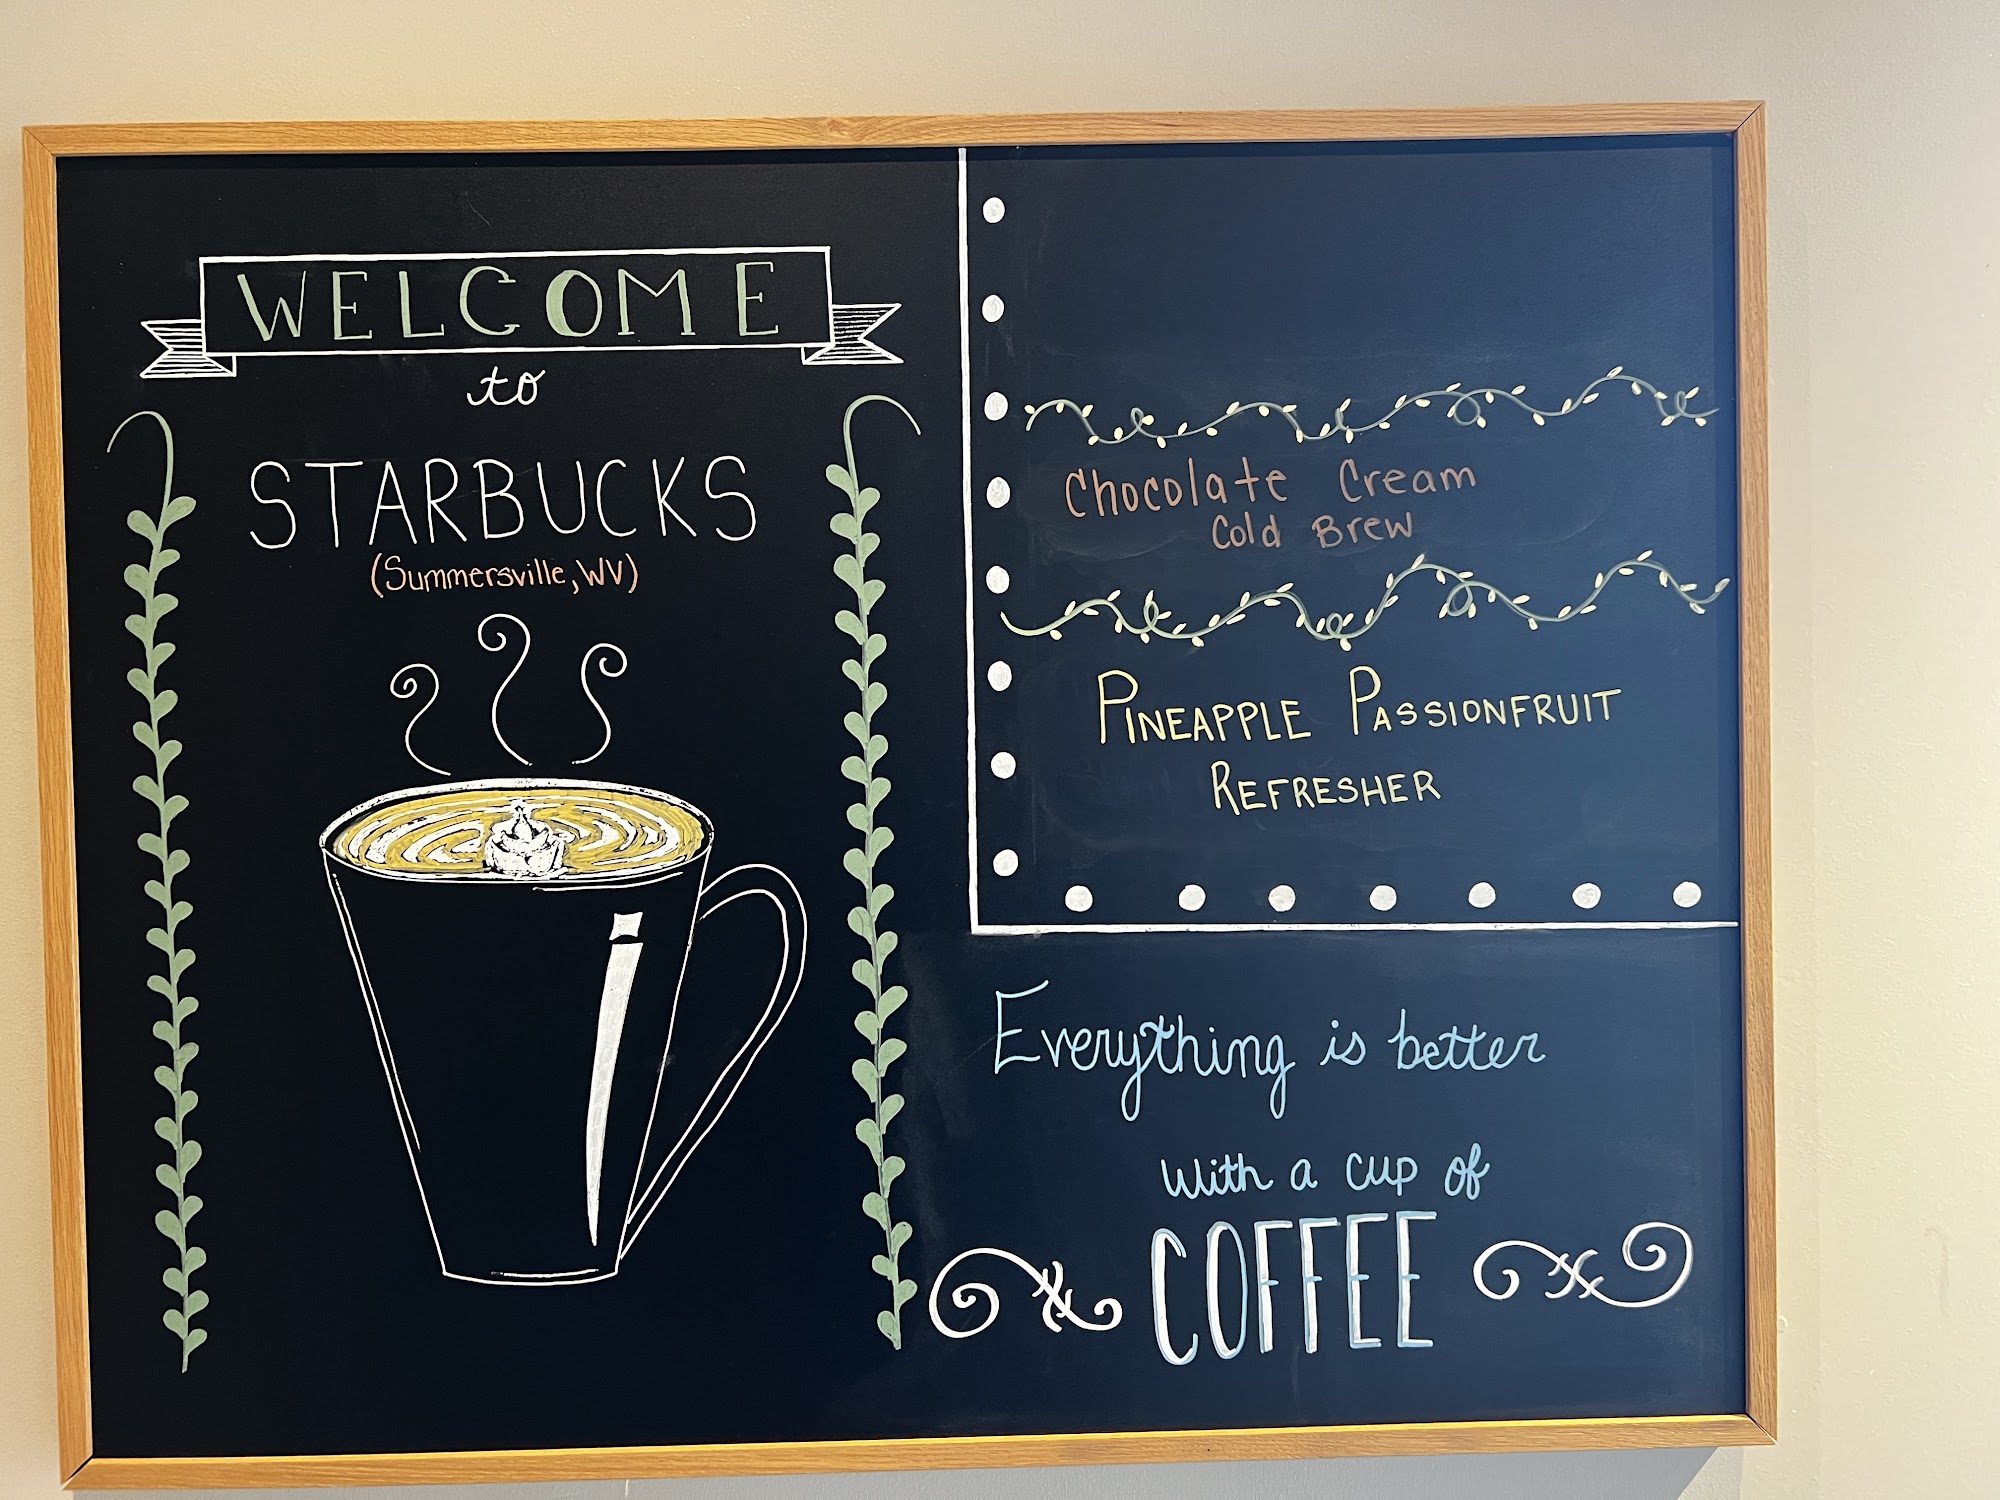 WELCOME
to
STARBUCKS
(Summersville, WV)
Chocolate Cream
Cold Brew
PINEAPPLE PASSIONFRUIT
REFRESHER
Everything is better
with a cup of
COFFEE